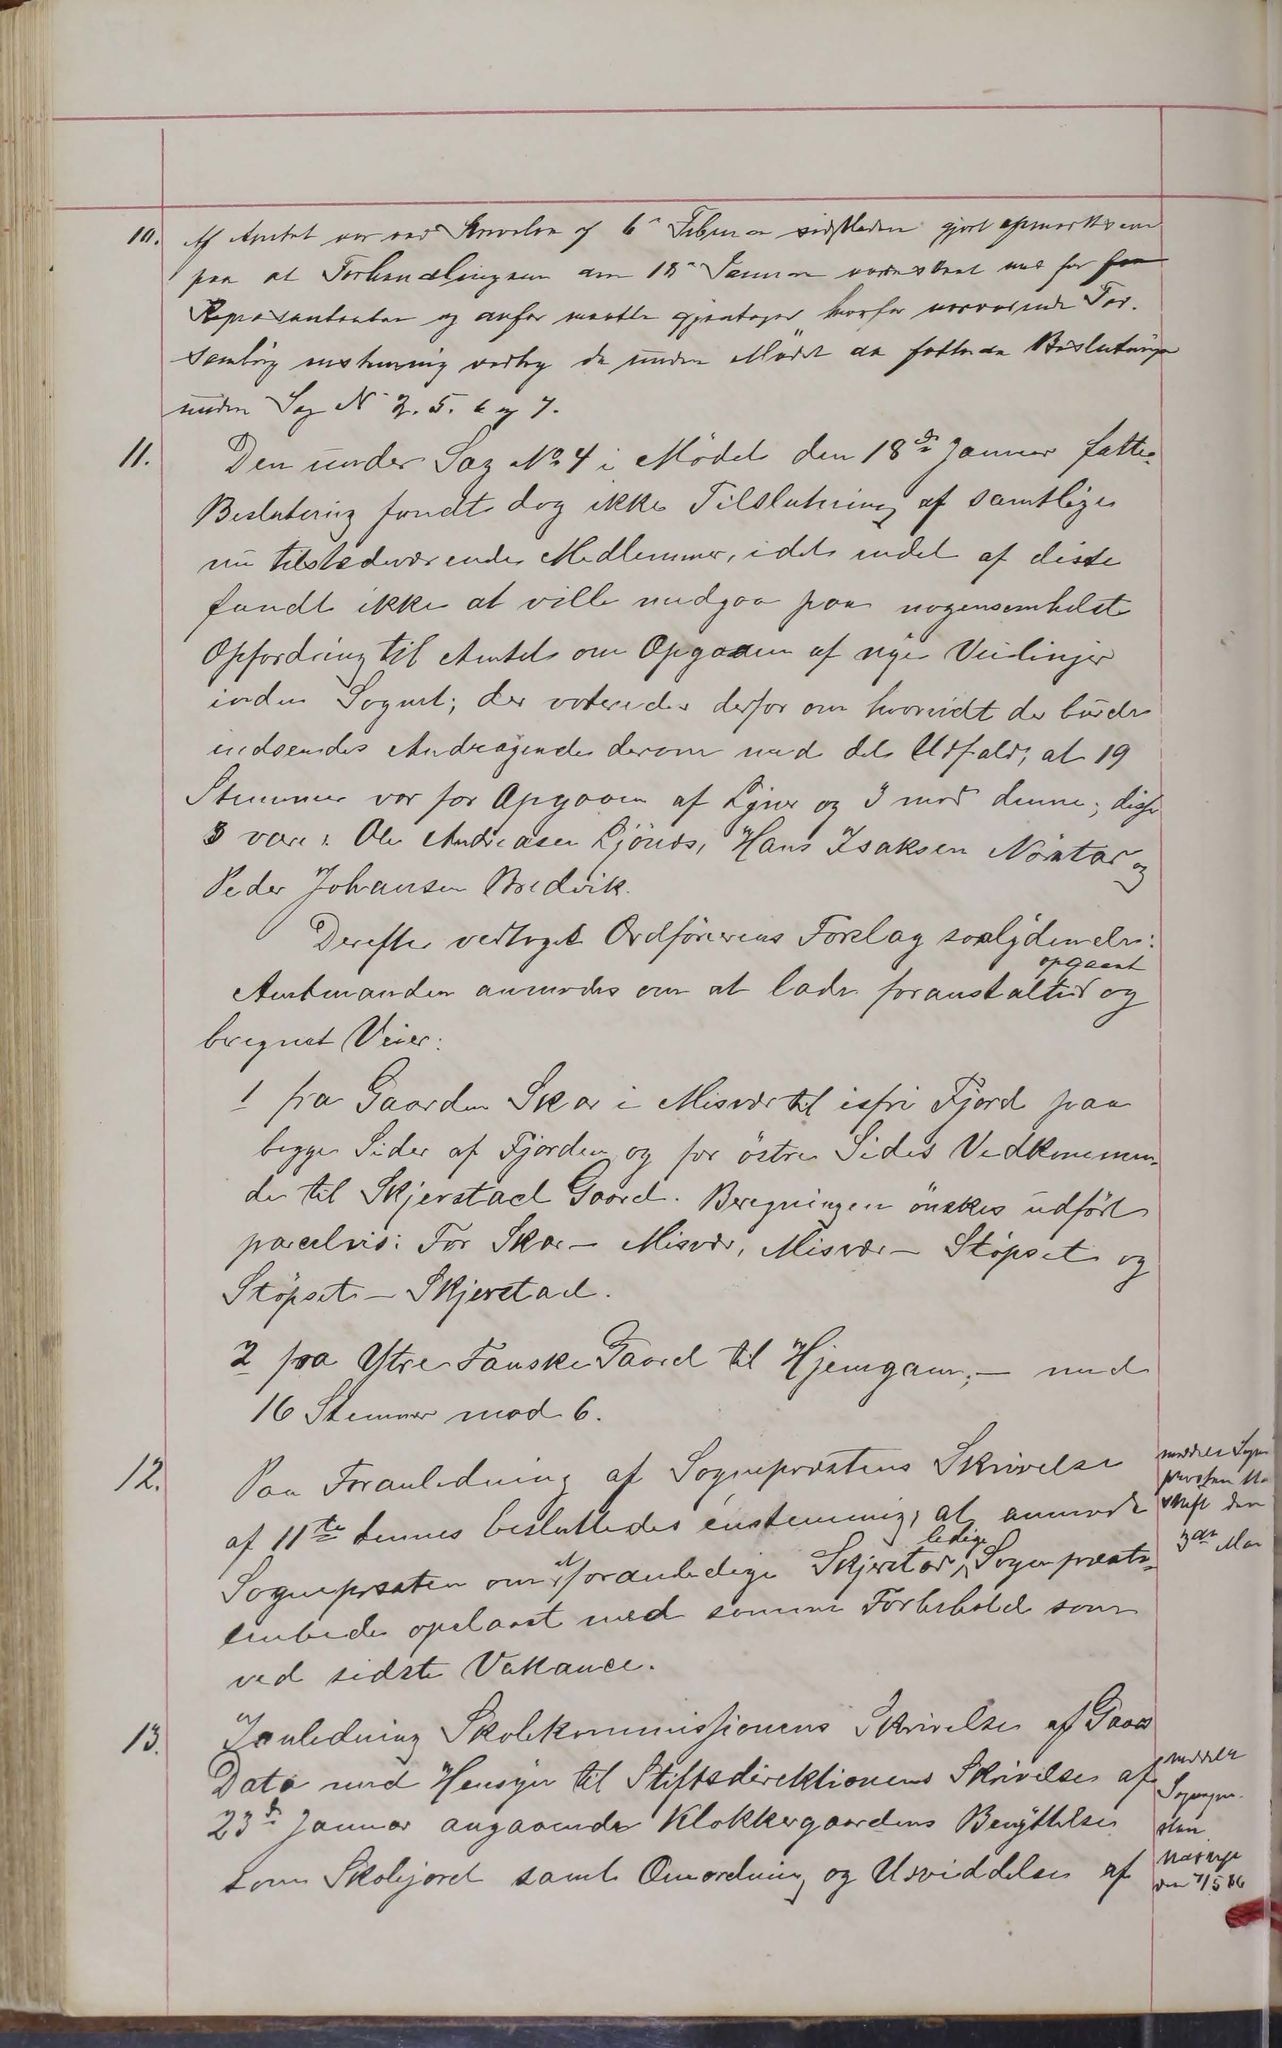 10. Af Amtet var ved Skrivelse af 6te Februar sidstleden gjort opmærksom
paa at Forhandlingerne den 18de Januar vare skeet med for faa
Repræsentanter og derfor maatte gjentages hvorfor nærværende For-
samling enstemmig vedtog de under Mødet da fattede Beslutninger
under Sag No 2. 5. 6 og 7.
11. Den under Sag No 4 i Mödet den 18de Januar fattede
Beslutning fandt dog ikke Tilslutning af samtlige
nu tilstedeværende Medlemmer, idet endel af disse
fandt ikke at ville medgaa paa nogensomhelst
Opfordring til Amtet om Opgaaen af nye Veilinjer
inden Sognet; der voteredes derfor om hvorvidt der burde
indsendes Andragende derom med det Udfald, at 19
Stemmer var for Opgaaen af Linjer og 3 mod denne; disse
3 vare: Ole Andreasen Ljönes, Hans Isaksen og
Peder Johansen Bredvik.
Derefter vedtoges Ordförerens Forslag saalydende:
opgaaet
Amtmanden anmodes om at lade foranstaltet og
beregnet Veier:
1 fra Gaarden Skar i Misvær til isfri Fjord paa
begge Sider af Fjorden og for östre Sides Vedkommen-
de til Skjerstad Gaard. Beregningen önskes udfört
parcelvis: For Skar – Misvær, Misvær – Stöpset og
Stöpset – Skjerstad.
2 fra Ytre Fauske Gaard til Hjemgam; – med
16 Stemmer mod 6.
12. Paa Foranledning af Sognepræstens Skrivelse
af 11te dennes besluttedes enstemmig, at anmode
ledige
Sognepræsten om at foranledige Skjerstad Sognepræste-
embede opslaaet med samme Forbehold som
ved sidste Vakance.
meddelt Sogne
præsten
skrift den
3die Mai
13. I Anledning Skolekommissionens Skrivelse af Gaars
Dato med Hensyn til Stiftsdirektionens Skrivelse af
23de Januar angaaende Klokkergaardens Benyttelse
som Skolejord samt Omordning og Udviddelse af
meddelt
Sognepræ-
sten
den 7/5 86